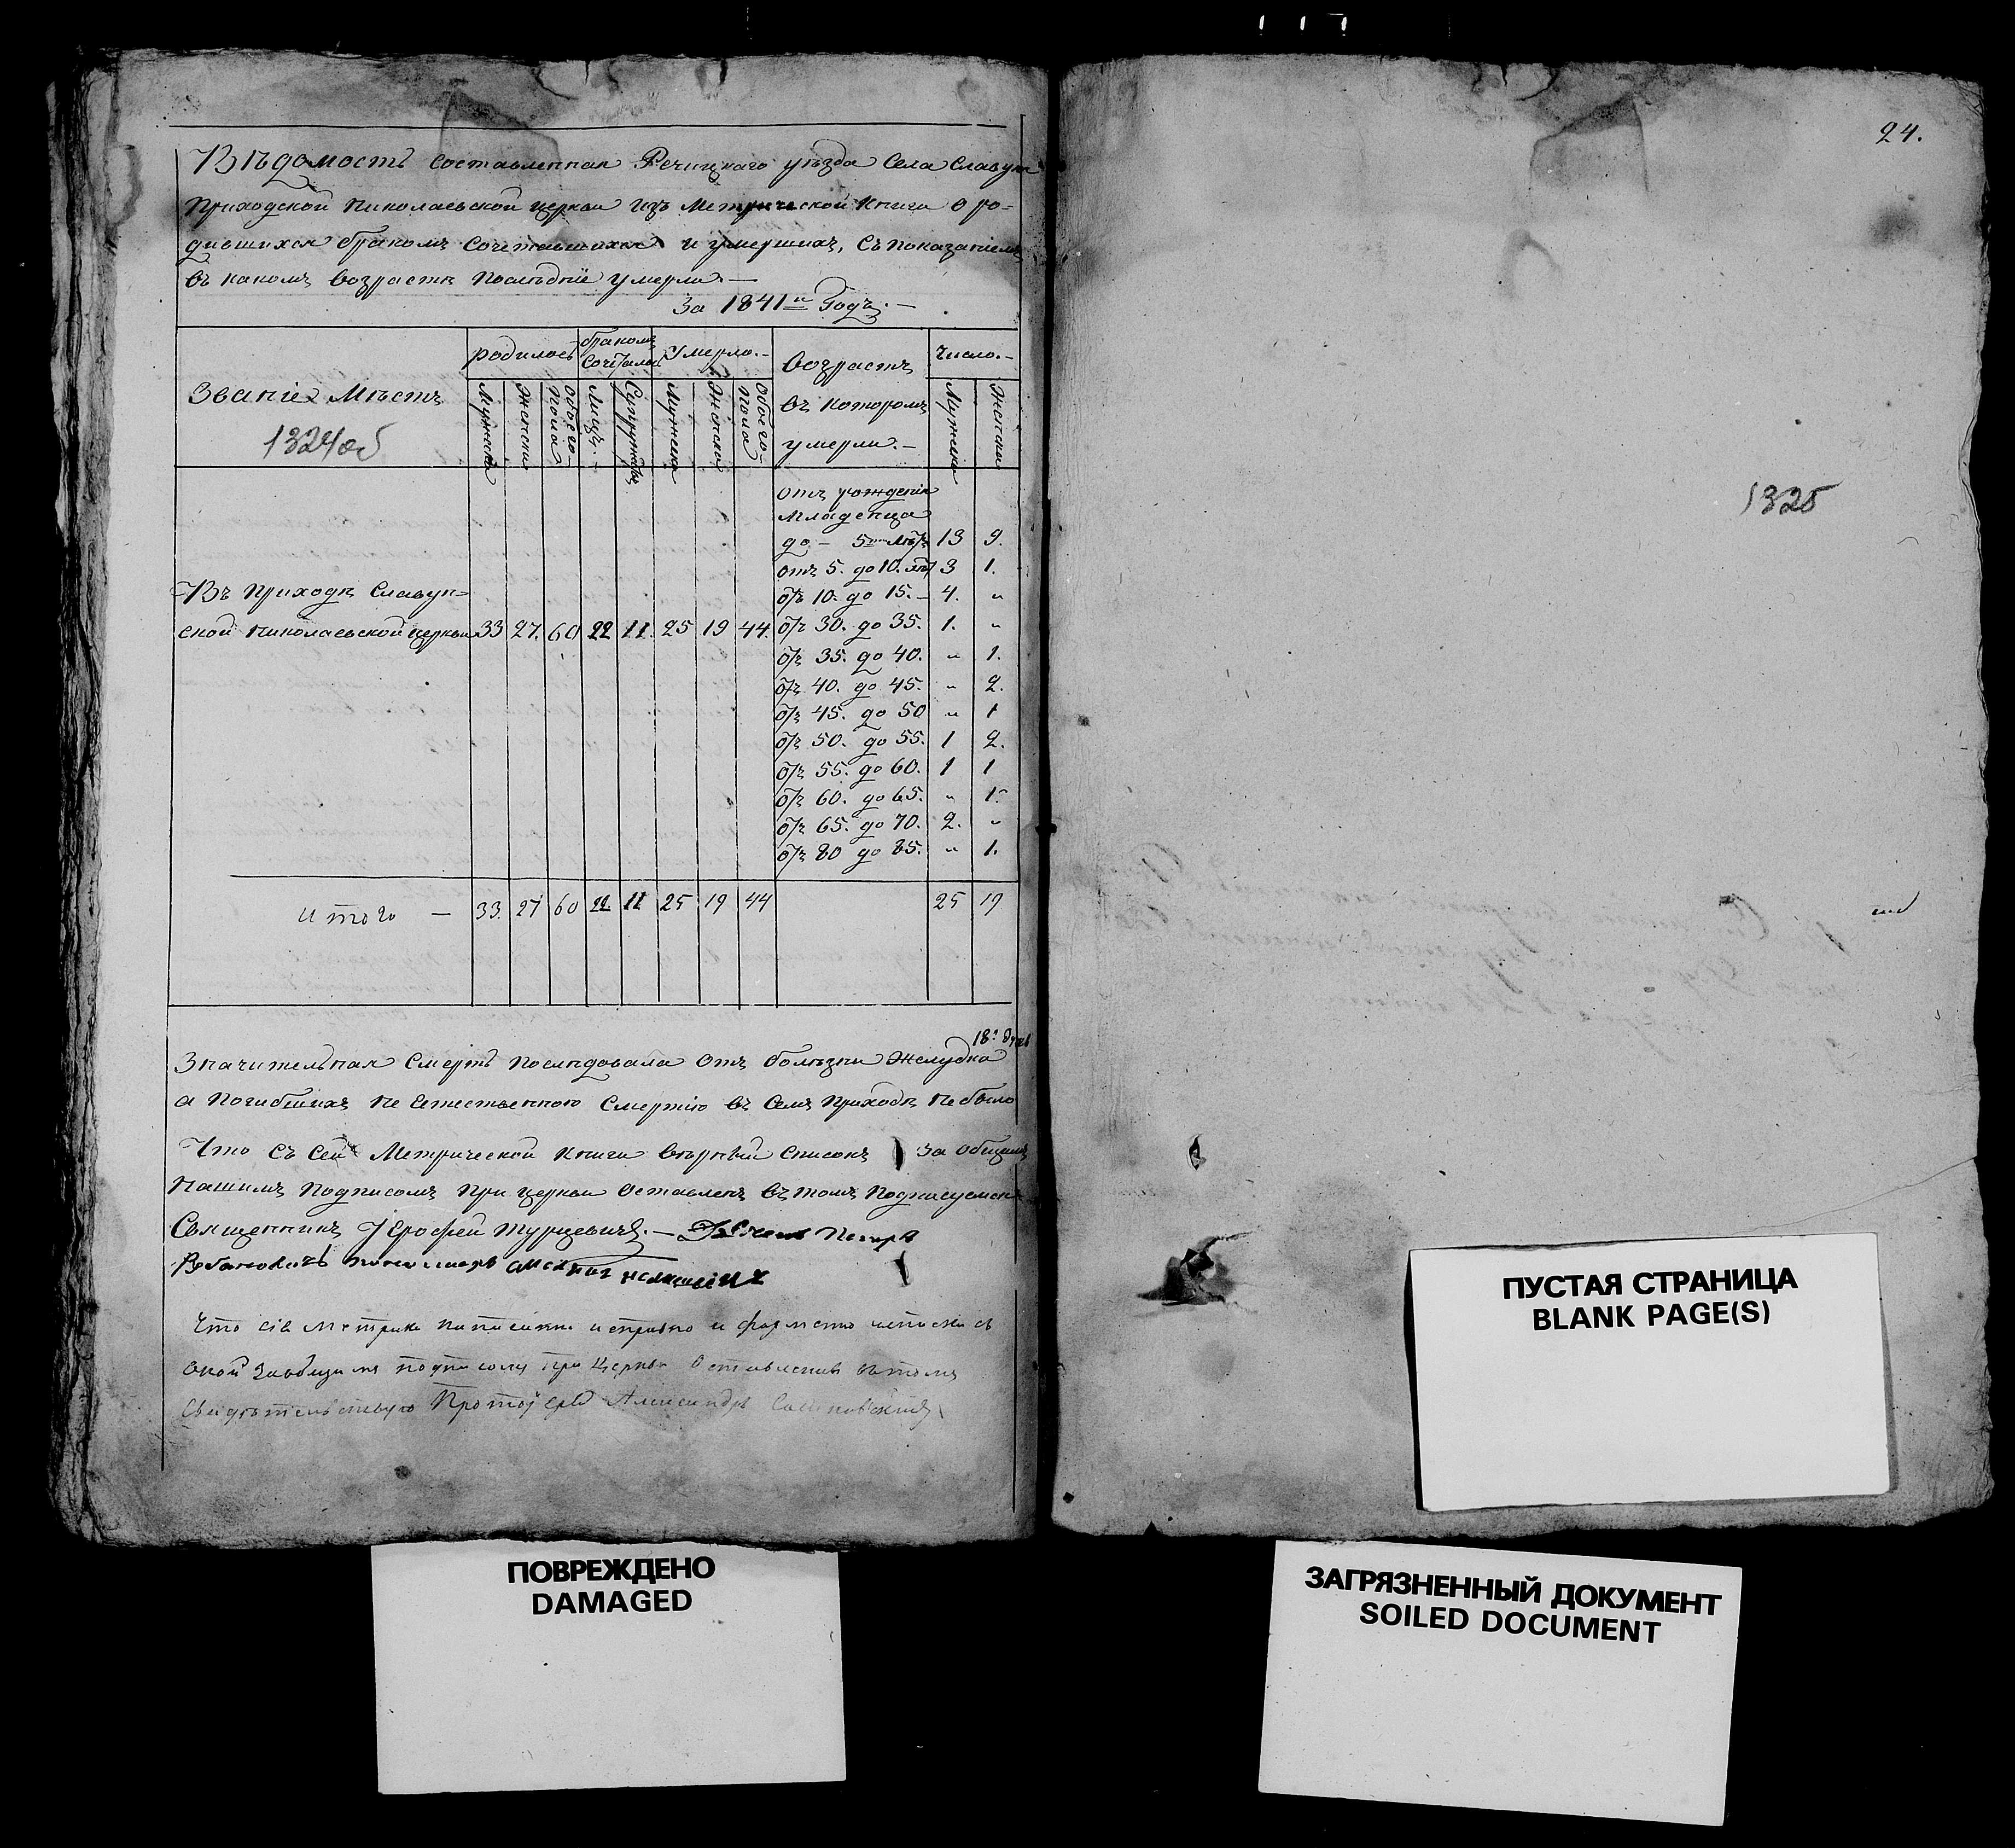 Вѣдомость составленная Рѣчицкаго уѣзда Села
Приходской Николаевской церкви изъ Метрической Книги о ро-
дившихся бракомъ сочетавшихся и умершихъ, съ показаніемъ
въ какомъ возрастѣ послѣдніе умерли.—
За 1841й Годъ.—
Званіе Мѣстъ
1324об
родилось
бракомъ сочеталось
Умерло.—
Возрастъ
въ которомъ
умерли.—
Число.—
Мужеска
Женска
Обоего Пола
Лицъ.—
Мужеска
Женска
Обоего Пола
Мужеска
Женска
отъ рожденія
Младенца
до — 5 лѣтъ 13 9.
отъ 5. до 10. лѣт 3 1.
отъ 10. до 15.— 4. "
Въ Приходѣ
ской Николаевской церкви 33 27. 60 22 11. 25 19 44. отъ 30. до 35. 1. "
отъ 35. до 40. " 1.
отъ 40. до 45. " 2.
отъ 45. до 50 " 1
отъ 50. до 55. 1 2.
отъ 55. до 60. 1 1
отъ 60. до 65. " 1.
отъ 65. до 70. 2. "
отъ 80 до 85. " 1.
Итого — 33. 27 60 22. 11 25 19 44 25 19
Значительная Смерть послѣдовала отъ болѣзни Желудка
а Погибшихъ не Естественною Смертію въ Семъ Приходѣ не было
Что съ сей Метрической Книги вѣрный списокъ за общимъ
нашимъ подписомъ при церкви Оставленъ въ томъ
Священникъ Іерофей Турцевичъ.—
Что сія метрика написана исправно и
оной за общимъ подписомъ при Церкви Оставленъ въ томъ
свидѣтельствую Протоіерей Александръ
24.
1325
ПУСТАЯ СТРАНИЦА
BLANK PAGE(S)
ПОВРЕЖДЕНО
DAMAGED
ЗАГРЯЗНЕННЫЙ ДОКУМЕНТ
SOILED DOCUMENT